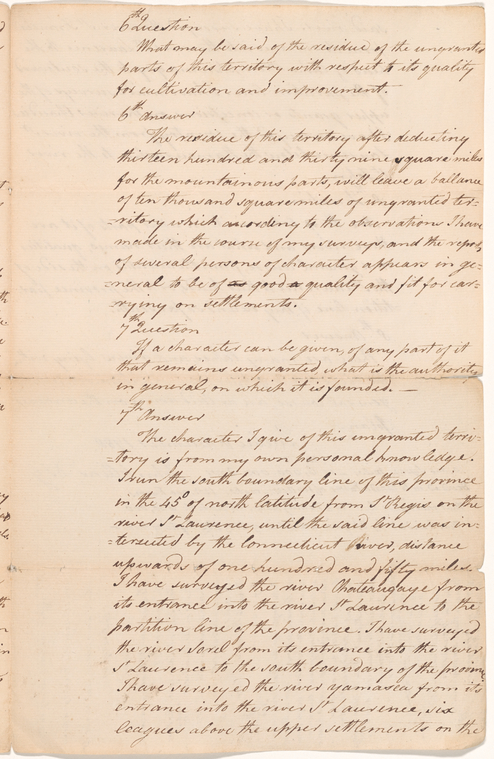 6th Question
What may be said of the residue of the ungranted
parts of this territory with respect to its quality
for cultivation and improvement.
6th Answer
The residue of this territory after deducting
thirteen hundred and thirty nine square miles
for the mountainous parts, will leave a ballance
of ten thousand square miles of ungranted ter-
=ritory which acordeng to the observations I have
made in the course of my surveys, and the repors
of several persons of character appears in ge-
=neral to be of as good a quality and fit for car-
=rying on settlements.
7th Question
If a character can be given, of any part of it
that remains ungranted, what is the authority
in general, on which it is founded. —
7th Answer
The character I give of this ungranted terri-
=tory is from my own personal knowledge.
I run the south boundary line of this province
in the 45° of north latitude from St Regis on the
river St Lawrence, until the said line was in-
=tersected by the Connecticut River, distance
upwards of one hundred and fifty miles.
I have surveyed the river Chateaugaye from
its entrance into the river St Laurence to the
partition line of the province. I have surveyed
the river Sorel from its entrance into the river
St Laurence to the south boundary of the province
I have surveyed the river yamasca from its
entrance into the river St Laurence, six
leagues above the upper settlements on the